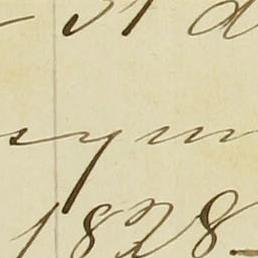 31 d
sym
1828